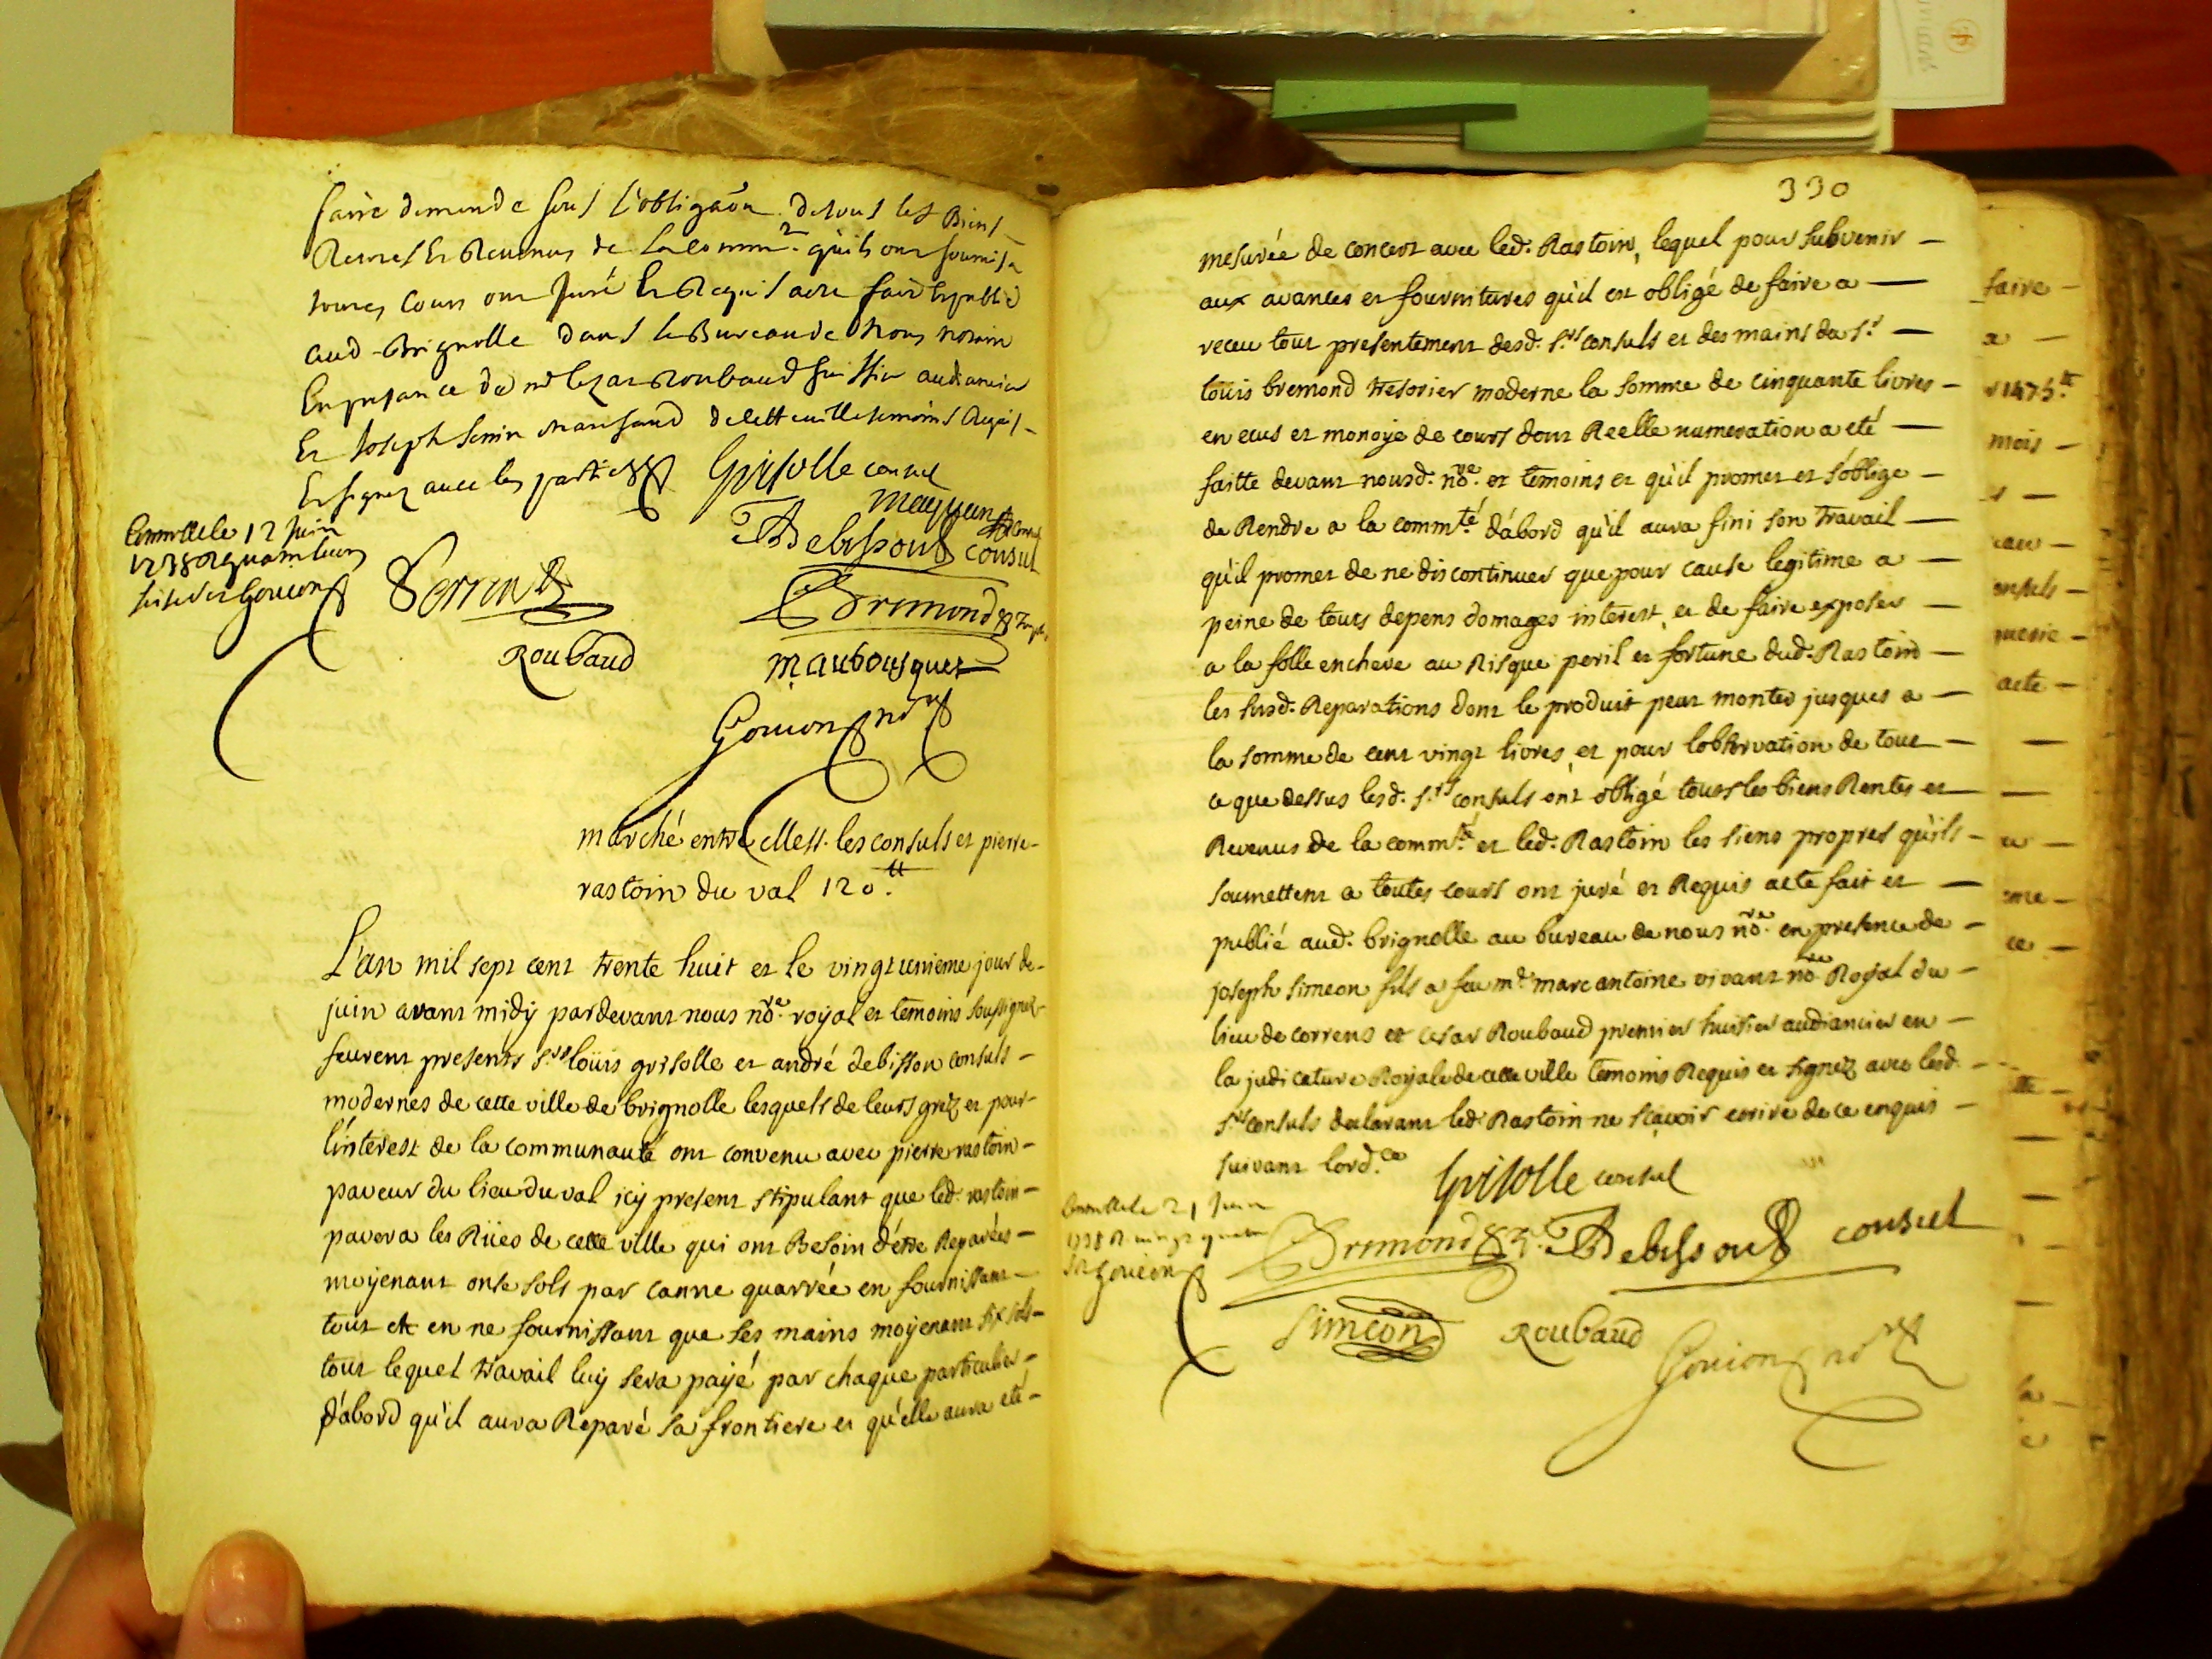 faire demande sous l'obligaõn de tous les Biens
Rentes Et Revenus de La Comm.té qu'ils ont soumis a
toutes Cours ont Juré Et Requis acte fait Et publié
aud. Brignolle dans le Bureau de Nous Notaire
En presance de me Cezar Roubaud huissier audiancier
Et Joseph Senin marchand de cette ville temoins Requis
Et signez avec les parties Grisolle consul
Debisson consul
Controllé le 12 Juin
1738 R
Gouion
Bremond
Roubaud maubousquet
Gouion nore
marché entre Mess. les consuls et pierre
rastoin du val 120.tt
L'an mil sept cent trente huit et le vingt unieme jour de
juin avant midy pardevant nous nõ.re royal et temoins soussignez
feurent presents s.rs loüis grisolle et andré debisson consuls
modernes de cette ville de brignolle lesquels de leurs grez et pour
l'interest de la communauté ont convenu avec pierre rastoin
paveur du lieu du val icy present stipulant que led. rastoin
pavera les Rües de cette ville qui ont Besoin d'étre Reparées
moyenant onse sols par canne quarrée en fournissant
tout et en ne fournissant que ses mains moyenant six sols
tout lequel travail luy sera payé par chaque particulier
d'abord qu'il aura Reparé sa frontiere et qu'elle aura eté
330
mesurée de concert avec led. Rastoin, lequel pour subvenir
aux avances et fournitures qu'il est obligé de faire a
receu tout presentement desd. s.rs consuls et des mains du s.r
loüis bremond tresorier moderne la somme de cinquante livres
en ecus et monoye de cours dont Reelle numeration a eté
faitte devant nousd. nõ.re et temoins et qu'il promet et s'oblige
de Rendre a la comm.té d'abord qu'il aura fini son travail
qu'il promet de ne discontinuer que pour cause legitime a
peine de touts depens domages interest, et de faire exposer
a la folle enchere au Risque peril et fortune dud. Rastoin
les susd. Reparations dont le produit peut monter jusques a
la somme de cent vingt livres, et pour l'observation de tout
ce que dessus lesd. s.rs consuls ont obligé tous les biens Rentes et
Revenus de la comm.té et led. Rastoin les siens propres qu'ils
soumettent a toutes cours ont juré et Requis acte fait et
publié aud. brignolle au bureau de nous nõ.re en presence de
joseph simeon fils a feu m.e marc antoine vivant nõ.re Royal du
lieu de correns et cesar Roubaud premier huissier audiancier en
la judicature Royale de cette ville temoins Requis et signez avec lesd.
s.rs consuls declarant led. Rastoin ne sçavoir ecrire de ce enquis
suivant l'ord.ce Grisolle consul
Controllé le 21 Juin
1738 R vingt quatre
Gouion
Bremond Debisson consul
Simeon Roubaud Gouion nore
faire
a
1475.tt
mois
onsuls
acte
ce